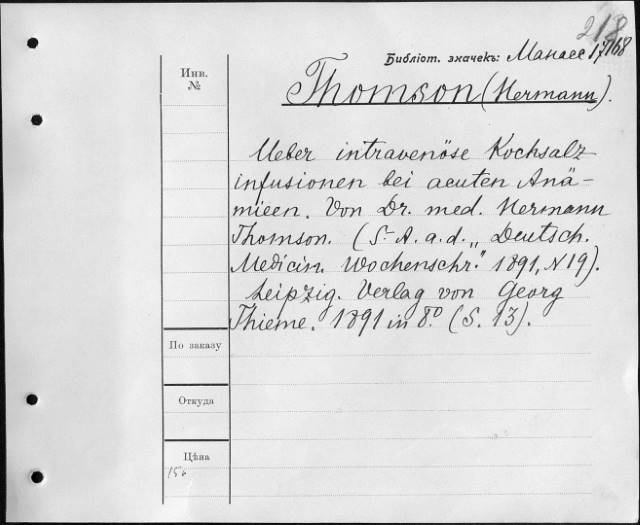 218
Библіот. значекъ: Манасе 17/168
Инв.
№
Thomson (Hermann).
Ueber intravenöse Kochsalz
infusionen bei acuten Anä-
mieen. Von Dr. med. Hermann
Thomson. (S. A. a. d. „Deutsch.
Medicin. Wochenschr." 1891, N 19).
Leipzig. Verlag von Georg
Thieme. 1891 in 8º. (S. 13).
По заказу
Откуда
Цѣна